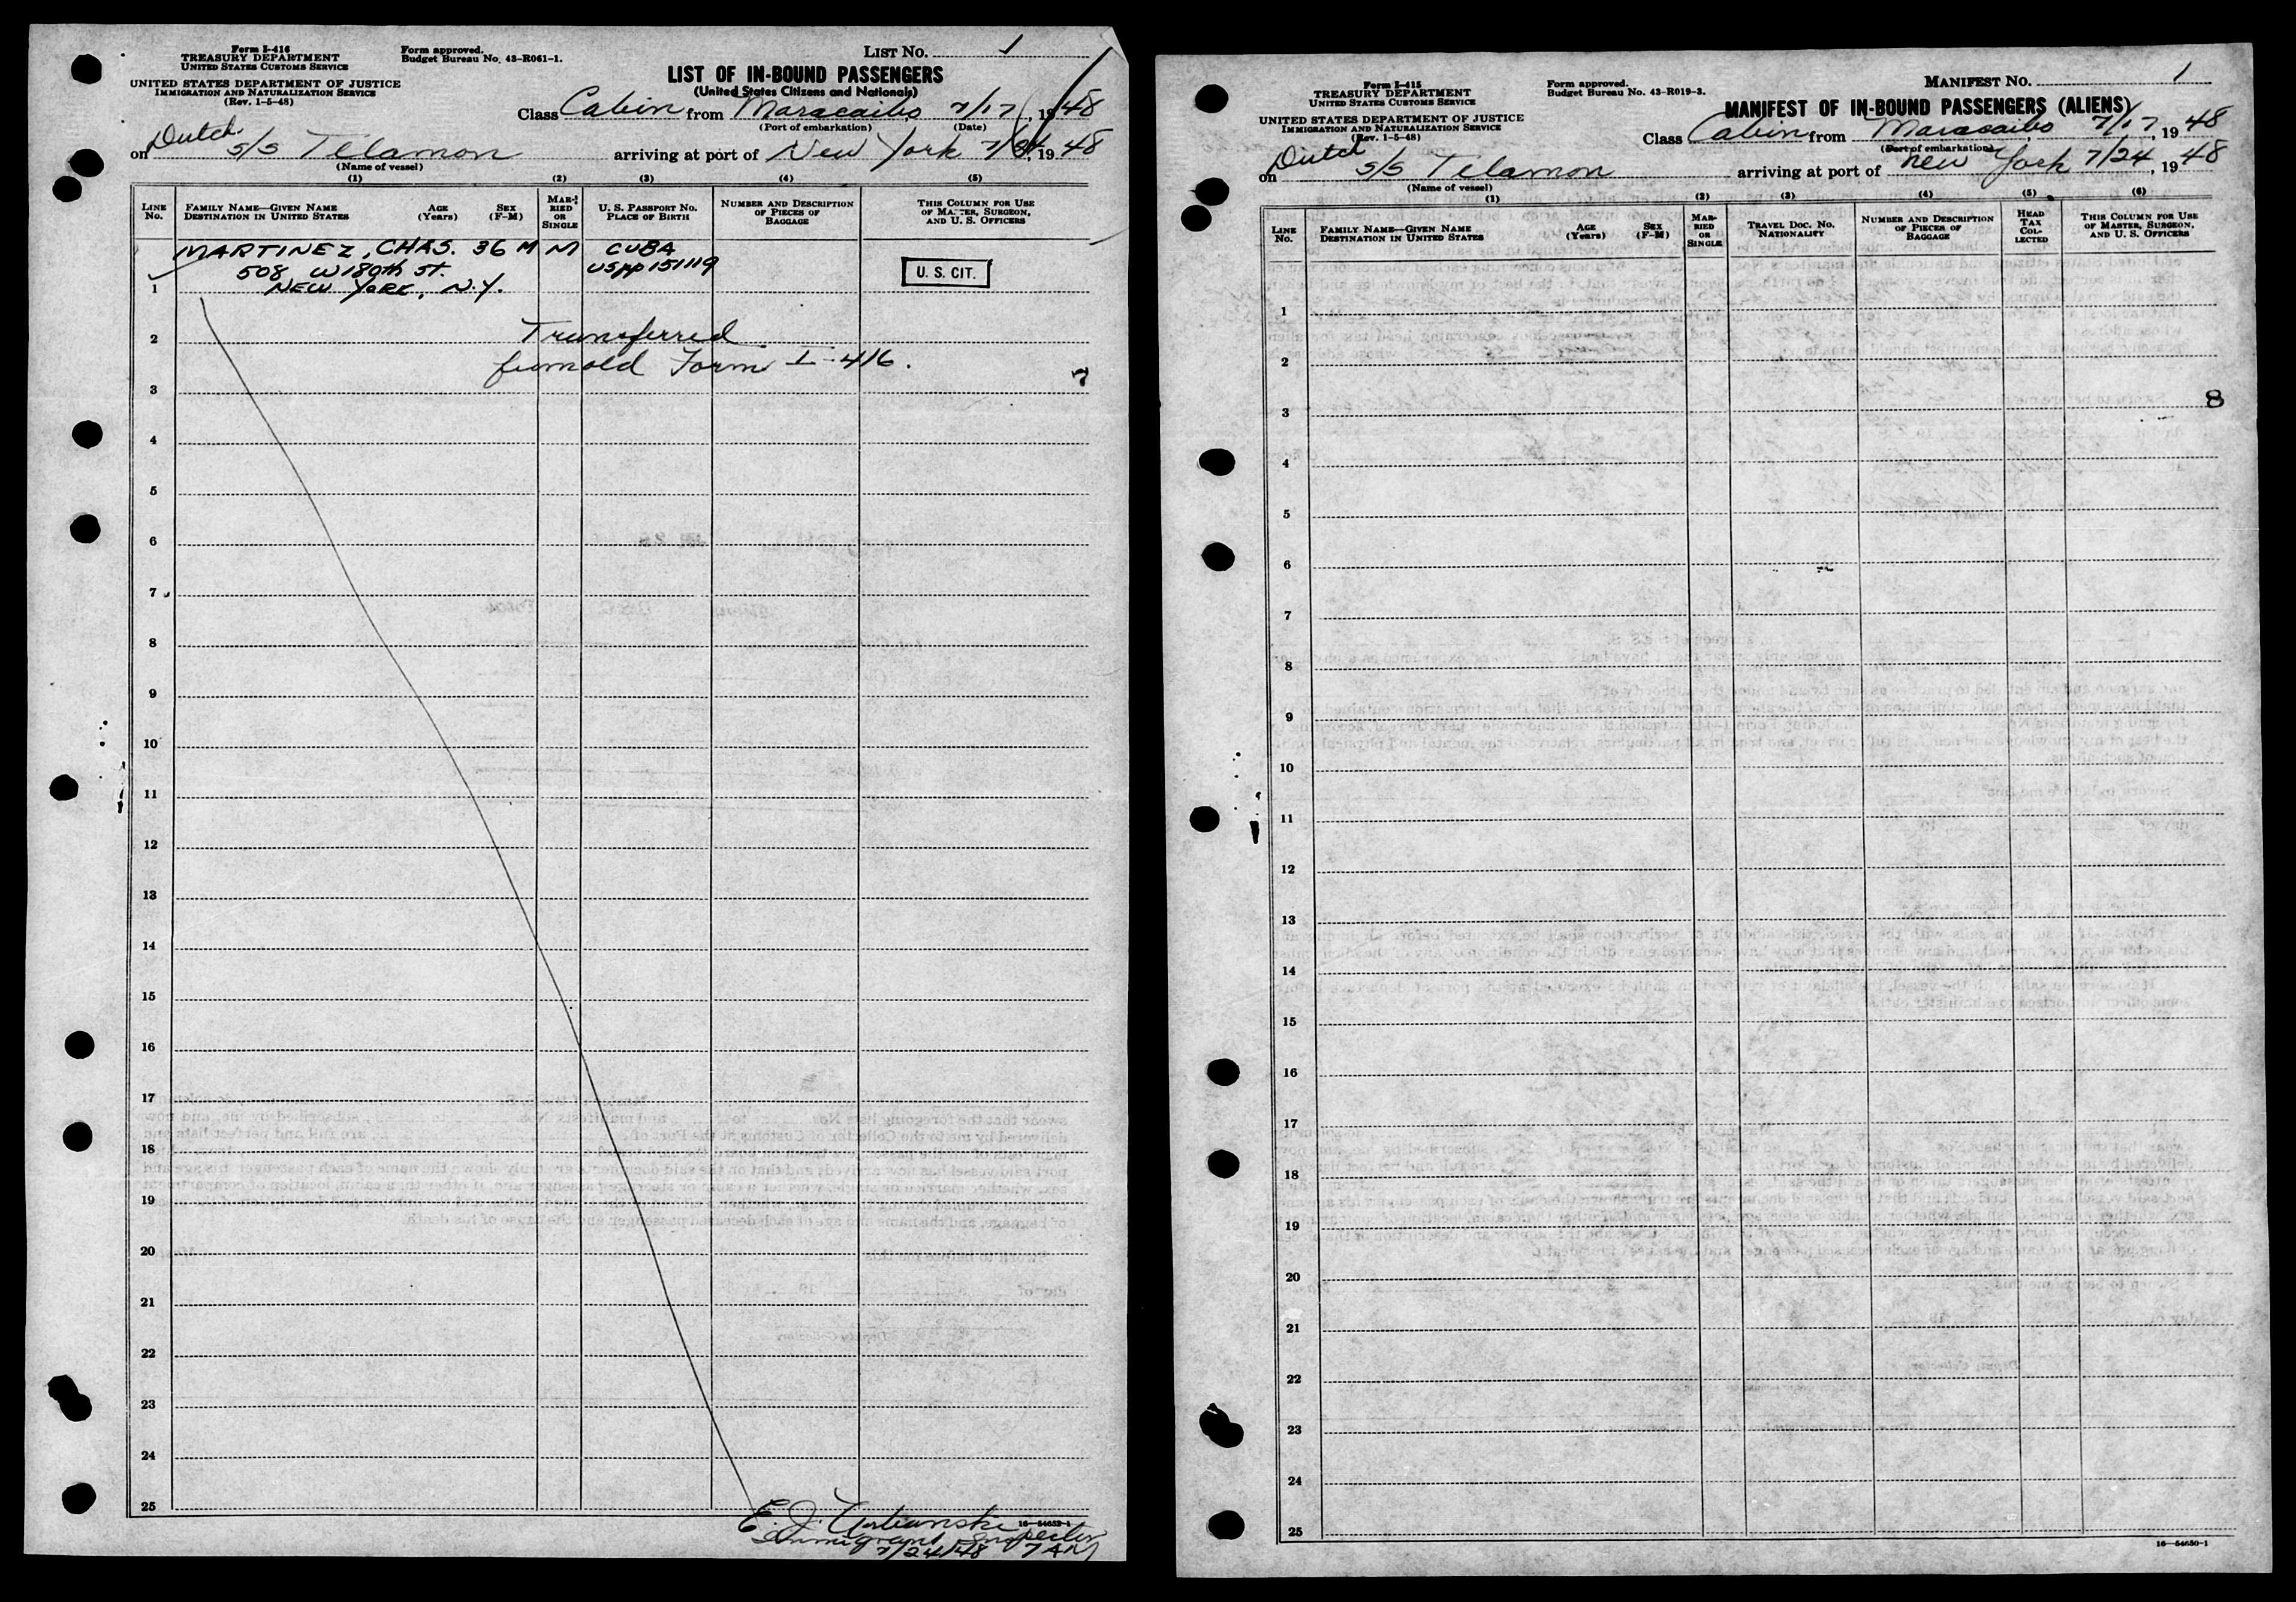 Form I-416
TREASURY DEPARTMENT
UNITED STATES CUSTOMS SERVICE
UNITED STATES DEPARTMENT OF JUSTICE
IMMIGRATION AND NATURALIZATION SERVICE
(Rev. 1-5-48)
Form approved.
Budget Bureau No. 43-R061-1.
LIST NO. 1
LIST OF IN-BOUND PASSENGERS
(United States Citizens and Nationals)
Class Cabin from Maracaibo 7/17, 1948
(Port of embarkation) (Date)
on Dutch S/S Telamon arriving at port of New York 7/24, 1948
(Name of vessel)
(1) (2) (3) (4) (5)
LINE No. FAMILY NAME—GIVEN NAME DESTINATION IN UNITED STATES AGE (Years) SEX (F-M) MARRIED OR SINGLE U. S. PASSPORT NO. PLACE OF BIRTH NUMBER AND DESCRIPTION OF PIECES OF BAGGAGE THIS COLUMN FOR USE OF MASTER, SURGEON, AND U. S. OFFICERS
MARTINEZ, CHAS. 36 M M CUBA
508 W 180th ST. USPP 151119 U. S. CIT.
1 NEW YORK, N.Y.
Transferred
2
Form I-416.
7
3
4
5
6
7
8
9
10
11
12
13
14
15
16
17
18
19
20
21
22
23
24
25
E. J.
16—54652-1
Immigrant Inspector
7/24/48 7 AM
Form I-415
TREASURY DEPARTMENT
UNITED STATES CUSTOMS SERVICE
UNITED STATES DEPARTMENT OF JUSTICE
IMMIGRATION AND NATURALIZATION SERVICE
(Rev. 1-5-48)
Form approved.
Budget Bureau No. 43-R019-3.
MANIFEST NO. 1
MANIFEST OF IN-BOUND PASSENGERS (ALIENS)
Class Cabin from Maracaibo 7/17, 1948
(Port of embarkation)
on Dutch S/S Telamon arriving at port of New York 7/24, 1948
(Name of vessel)
(1) (2) (3) (4) (5) (6)
LINE No. FAMILY NAME—GIVEN NAME DESTINATION IN UNITED STATES AGE (Years) SEX (F-M) MARRIED OR SINGLE TRAVEL DOC. NO. NATIONALITY NUMBER AND DESCRIPTION OF PIECES OF BAGGAGE HEAD TAX COLLECTED THIS COLUMN FOR USE OF MASTER, SURGEON, AND U. S. OFFICERS
1
2
8
3
4
5
6
7
8
9
10
11
12
13
14
15
16
17
18
19
20
21
22
23
24
25
16—54650-1